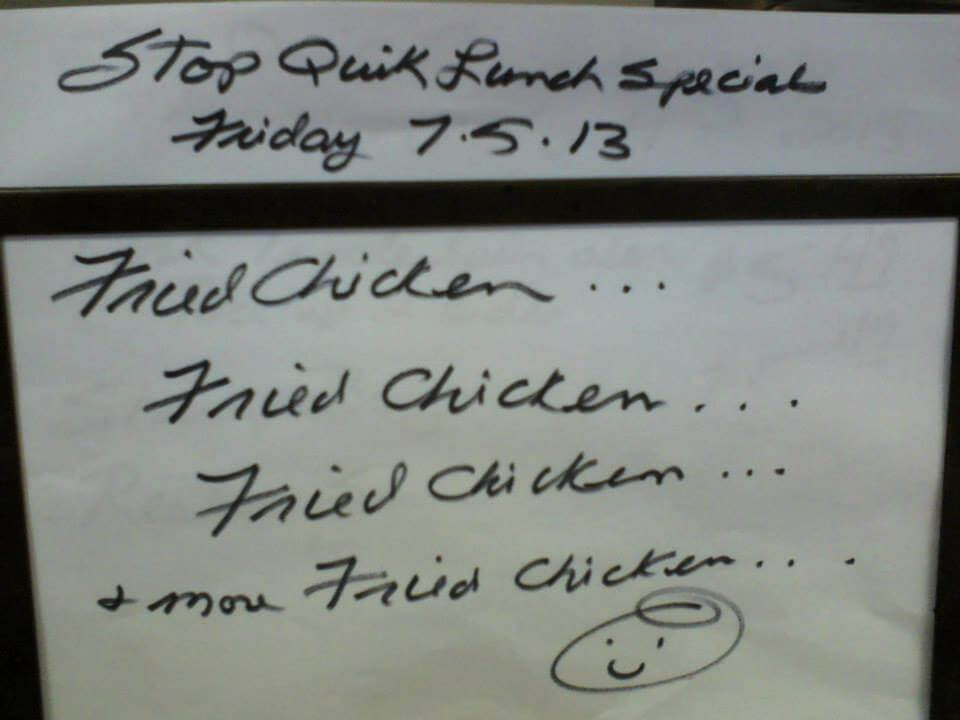 Stop Quik Lunch Special
Friday 7.5.13
Fried Chicken ...
Fried Chicken ...
Fried Chicken ...
& more Fried Chicken ....